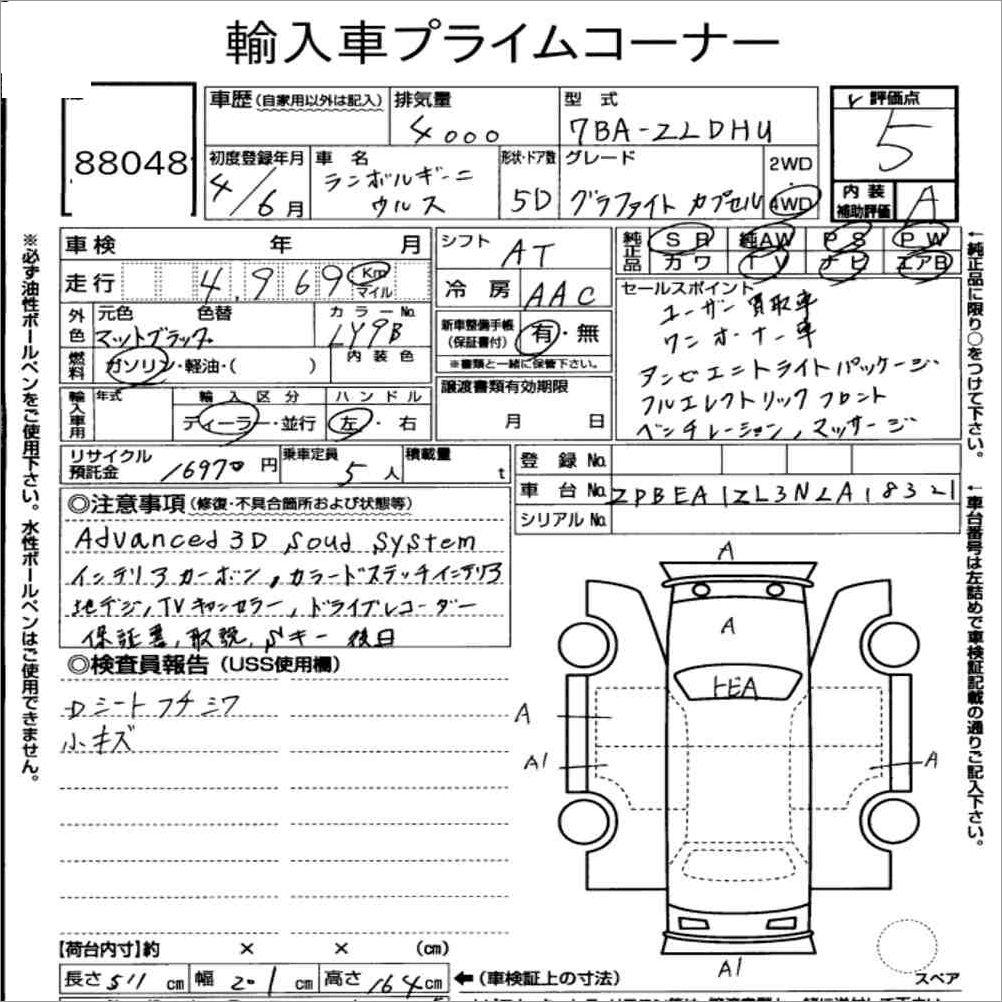 輸入車プライムコーナー
88048
車歴(自家用以外は記入)
排気量
4000
型式
7BA-ZLDHU
評価点
5
内装
補助評価
A
初度登録年月
4/6月
車名
ランボルギーニ
ウルス
形状・ドア数
5D
グレード
グラファイト カプセル
2WD
・
4WD
車検 年 月
走行 4,969 Km
マイル
外色
元色 色替
マットブラック
カラーNo.
LY9B
燃料
ガソリン・軽油・( )
内装色
輸入車用
年式
輸入区分
ディーラー・並行
ハンドル
左・右
シフト
AT
冷房
AAC
新車整備手帳
(保証書付)
有・無
※書類と一緒に保管下さい。
譲渡書類有効期限
月 日
純正品
SR 純AW PS PW
カワ TV ナビ エアB
セールスポイント
ユーザー買取車
ワンオーナー車
タンゼエントライトパッケージ
フルエレクトリックフロント
ベンチレーション,マッサージ
リサイクル
預託金
16970円
乗車定員
5人
積載量
t
登録No.
車台No.
ZPBEA1ZL3NLA18321
シリアルNo.
◎注意事項(修復・不具合箇所および状態等)
Advanced 3D Soud System
インテリアカーボン,カラードステッチインテリア
地デジ,TVキャンセラー,ドライブレコーダー
保証書,取説,Sキー 後日
◎検査員報告(USS使用欄)
Dシートフチシワ
小キズ
A
A
トEA
A
A1
A
A1
スペア
【荷台内寸】約 × × (cm)
長さ511cm 幅201cm 高さ164cm
←(車検証上の寸法)
※必ず油性ボールペンをご使用下さい。水性ボールペンはご使用できません。
←純正品に限り○をつけて下さい。
←車台番号は左詰めで車検証記載の通りご記入下さい。